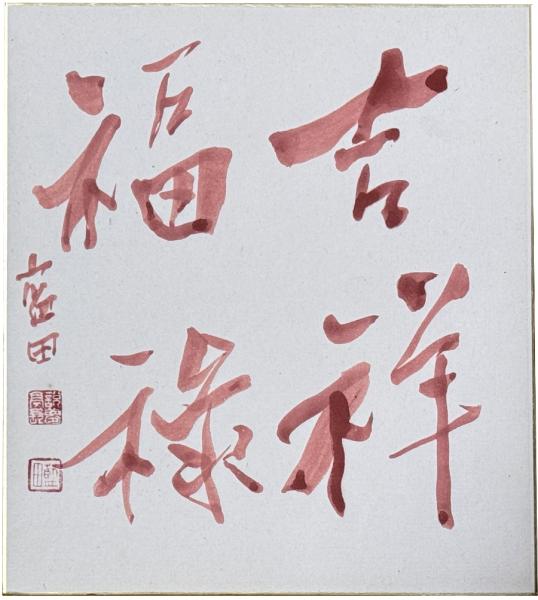 吉祥
福禄
藍田